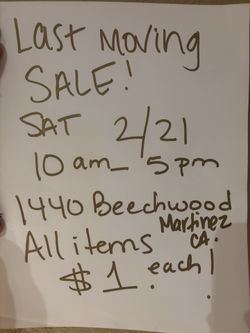 Last Moving
SALE!
SAT 2/21
10 am_ 5 pm
1440 Beechwood
Martinez
CA.
All items
$1 each!